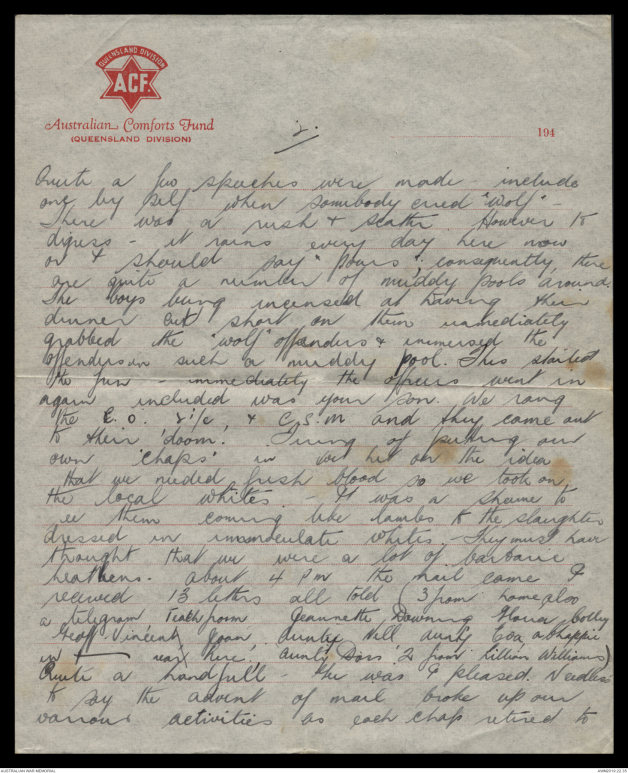 QUEENSLAND DIVISION
ACF.
Australian Comforts Fund
(QUEENSLAND DIVISION)
2.
194
Quite a few speeches were made - include
one by self when somebody cried "wolf" -
There was a rush & scatter. However to
digress - it rains every day here now
or I should say "pours"; consequently there
are quite a number of muddy pools around.
The boys being incensed at having their
dinner cut short on them immediately
grabbed the "wolf" offenders & immersed the
offenders in such a muddy pool. This started
the fun - immediately the officers went in
again included was your son. We rang
the C.O. 2i/c & C.S.M and they came out
to their 'doom'. Tiring of putting our
own 'chaps' in we hit on the idea
that we needed fresh blood so we took on
the local whites. - It was a shame to
see them coming like lambs to the slaughter
dressed in immaculate whites. - They must have
thought that we were a lot of barbaric
heathens. About 4 Pm the mail came I
received 13 letters all told (3 from home, also
a telegram, 1 each from Jeannette Downing, Gloria,
Geoff Vincent, Joan, Aunty Nell, Aunty Eva, a chappie
in near here, Aunty Doss, 2 from Lillian Williams)
Quite a handful - He was I pleased. Needless
to say the advent of mail broke up our
various activities as each chap retired to
AUSTRALIAN WAR MEMORIAL